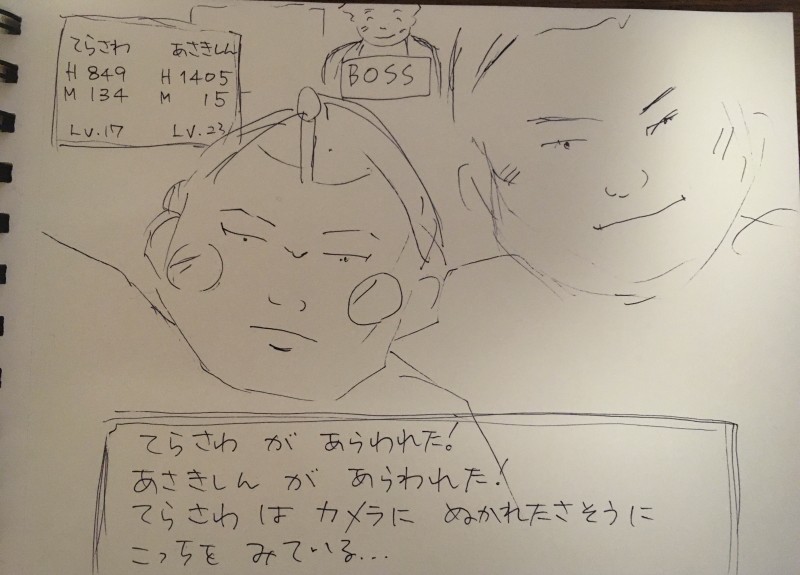 てらさわ あさきしん
H 849 H 1405
M 134 M 15
Lv.17 Lv.23
BOSS
てらさわ が あらわれた!
あさきしん が あらわれた!
てらさわ は カメラに ぬかれたさそうに
こっちを みている...